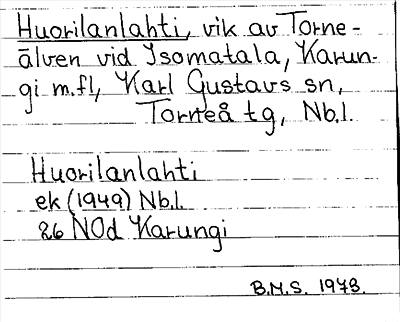 Huorilanlahti, vik av Torne-
älven vid Isomatala, Karun-
gi m.fl, Karl Gustavs sn,
Torneå tg, Nb.l.
Huorilanlahti
ek (1949) Nb.l.
26 NOd Karungi
B.M.S. 1973.